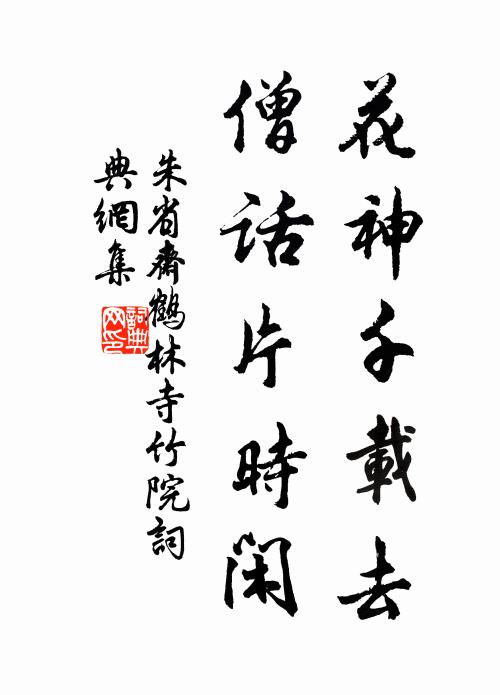 花神千載去
僧話片時閑
朱省齋鶴林寺竹院詞
典網集
詞典
网印